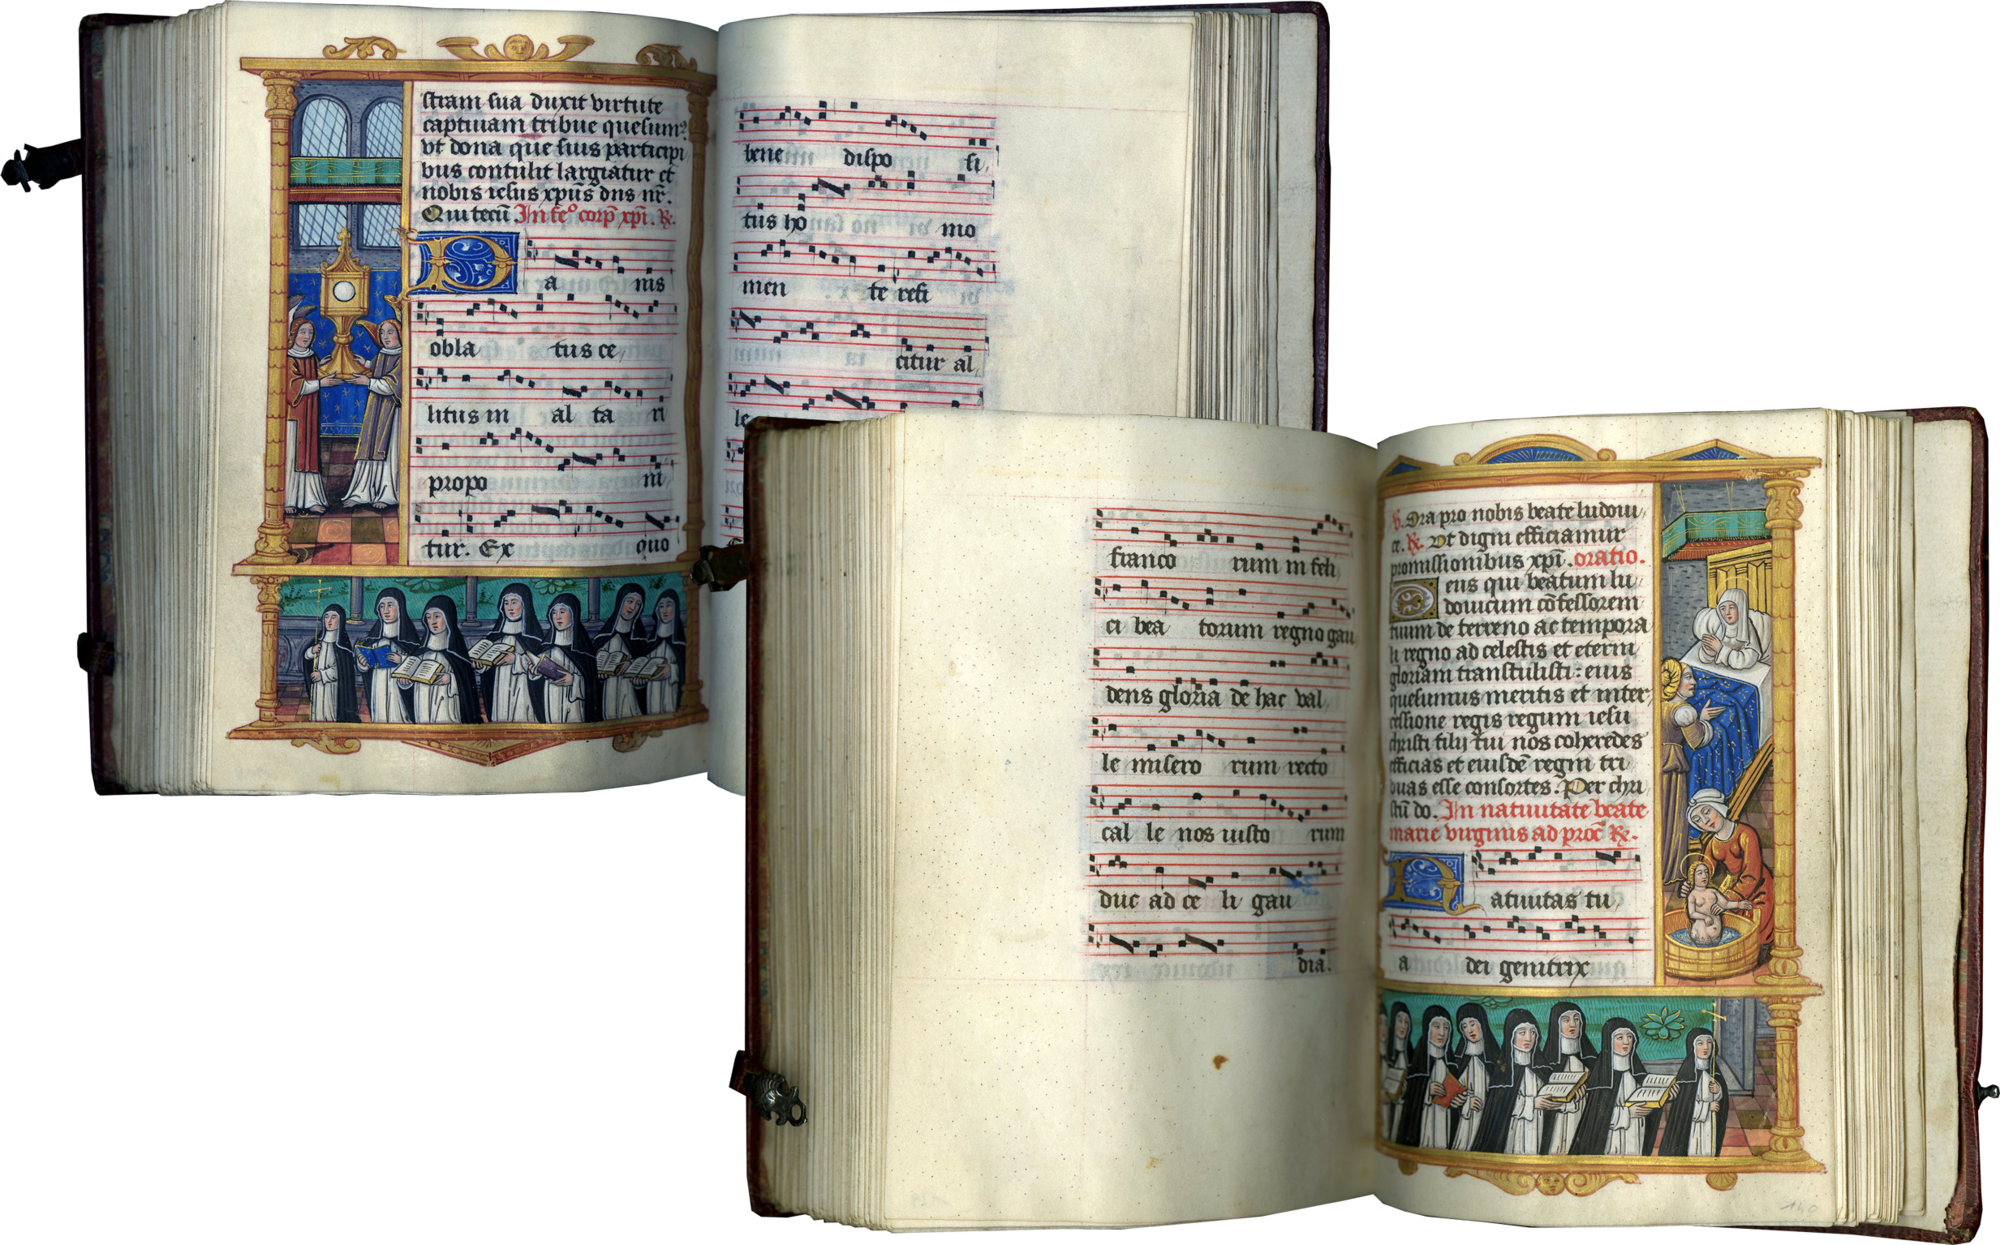 stram sua duxit virtute
captiuam tribue quesum᷒
vt dona que suis participi
bus contulit largiatur et
nobis iesus xp̄us dn̄s nr̄.
Qui tecū In fe⁰ corp̄ xp̄i. ℟.
P a nis
obla tus ce,
litus in al ta ri
propo ni
tur. Ex quo
bene dispo si,
tus ho mo
men te refi
citur al,
le
franco rum in feli
ci bea torum regno gau
dens gloria de hac val,
le misero rum recto
cal le nos iusto rum
duc ad ce li gau
dia.
℣. Ora pro nobis beate ludoui,
ce. ℟. Vt digni efficiamur
promissionibus xp̄i. oratio.
Deus qui beatum lu
douicum cōfessorem
tuum de terreno ac tempora
li regno ad celestis et eterni
gloriam transtulisti: eius
quesumus meritis et inter,
cessione regis regum iesu
christi filij tui nos coheredes
efficias et eiusdē regni tri
buas esse consortes. Per chri
stū do. In natiuitate beate
marie virginis ad proc̄ ℟.
N atiuitas tu,
a dei genitrix
140